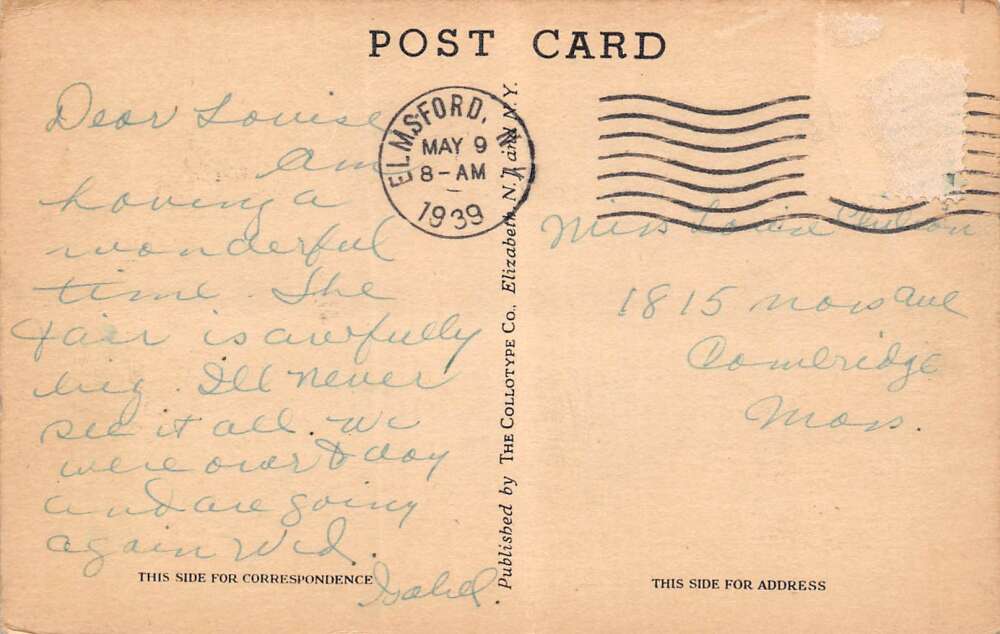 POST CARD
Dear Louise
Am
having a
wonderful
time. The
fair is awfully
big. I'll never
see it all. We
were over today
and are going
again Wed.
Isabel.
THIS SIDE FOR CORRESPONDENCE
ELMSFORD, N.Y.
MAY 9
8-AM
1939
Published by THE COLLOTYPE CO., Elizabeth, N.J. and N.Y.
Miss Louise
1815 Mass Ave
Cambridge
Mass.
THIS SIDE FOR ADDRESS